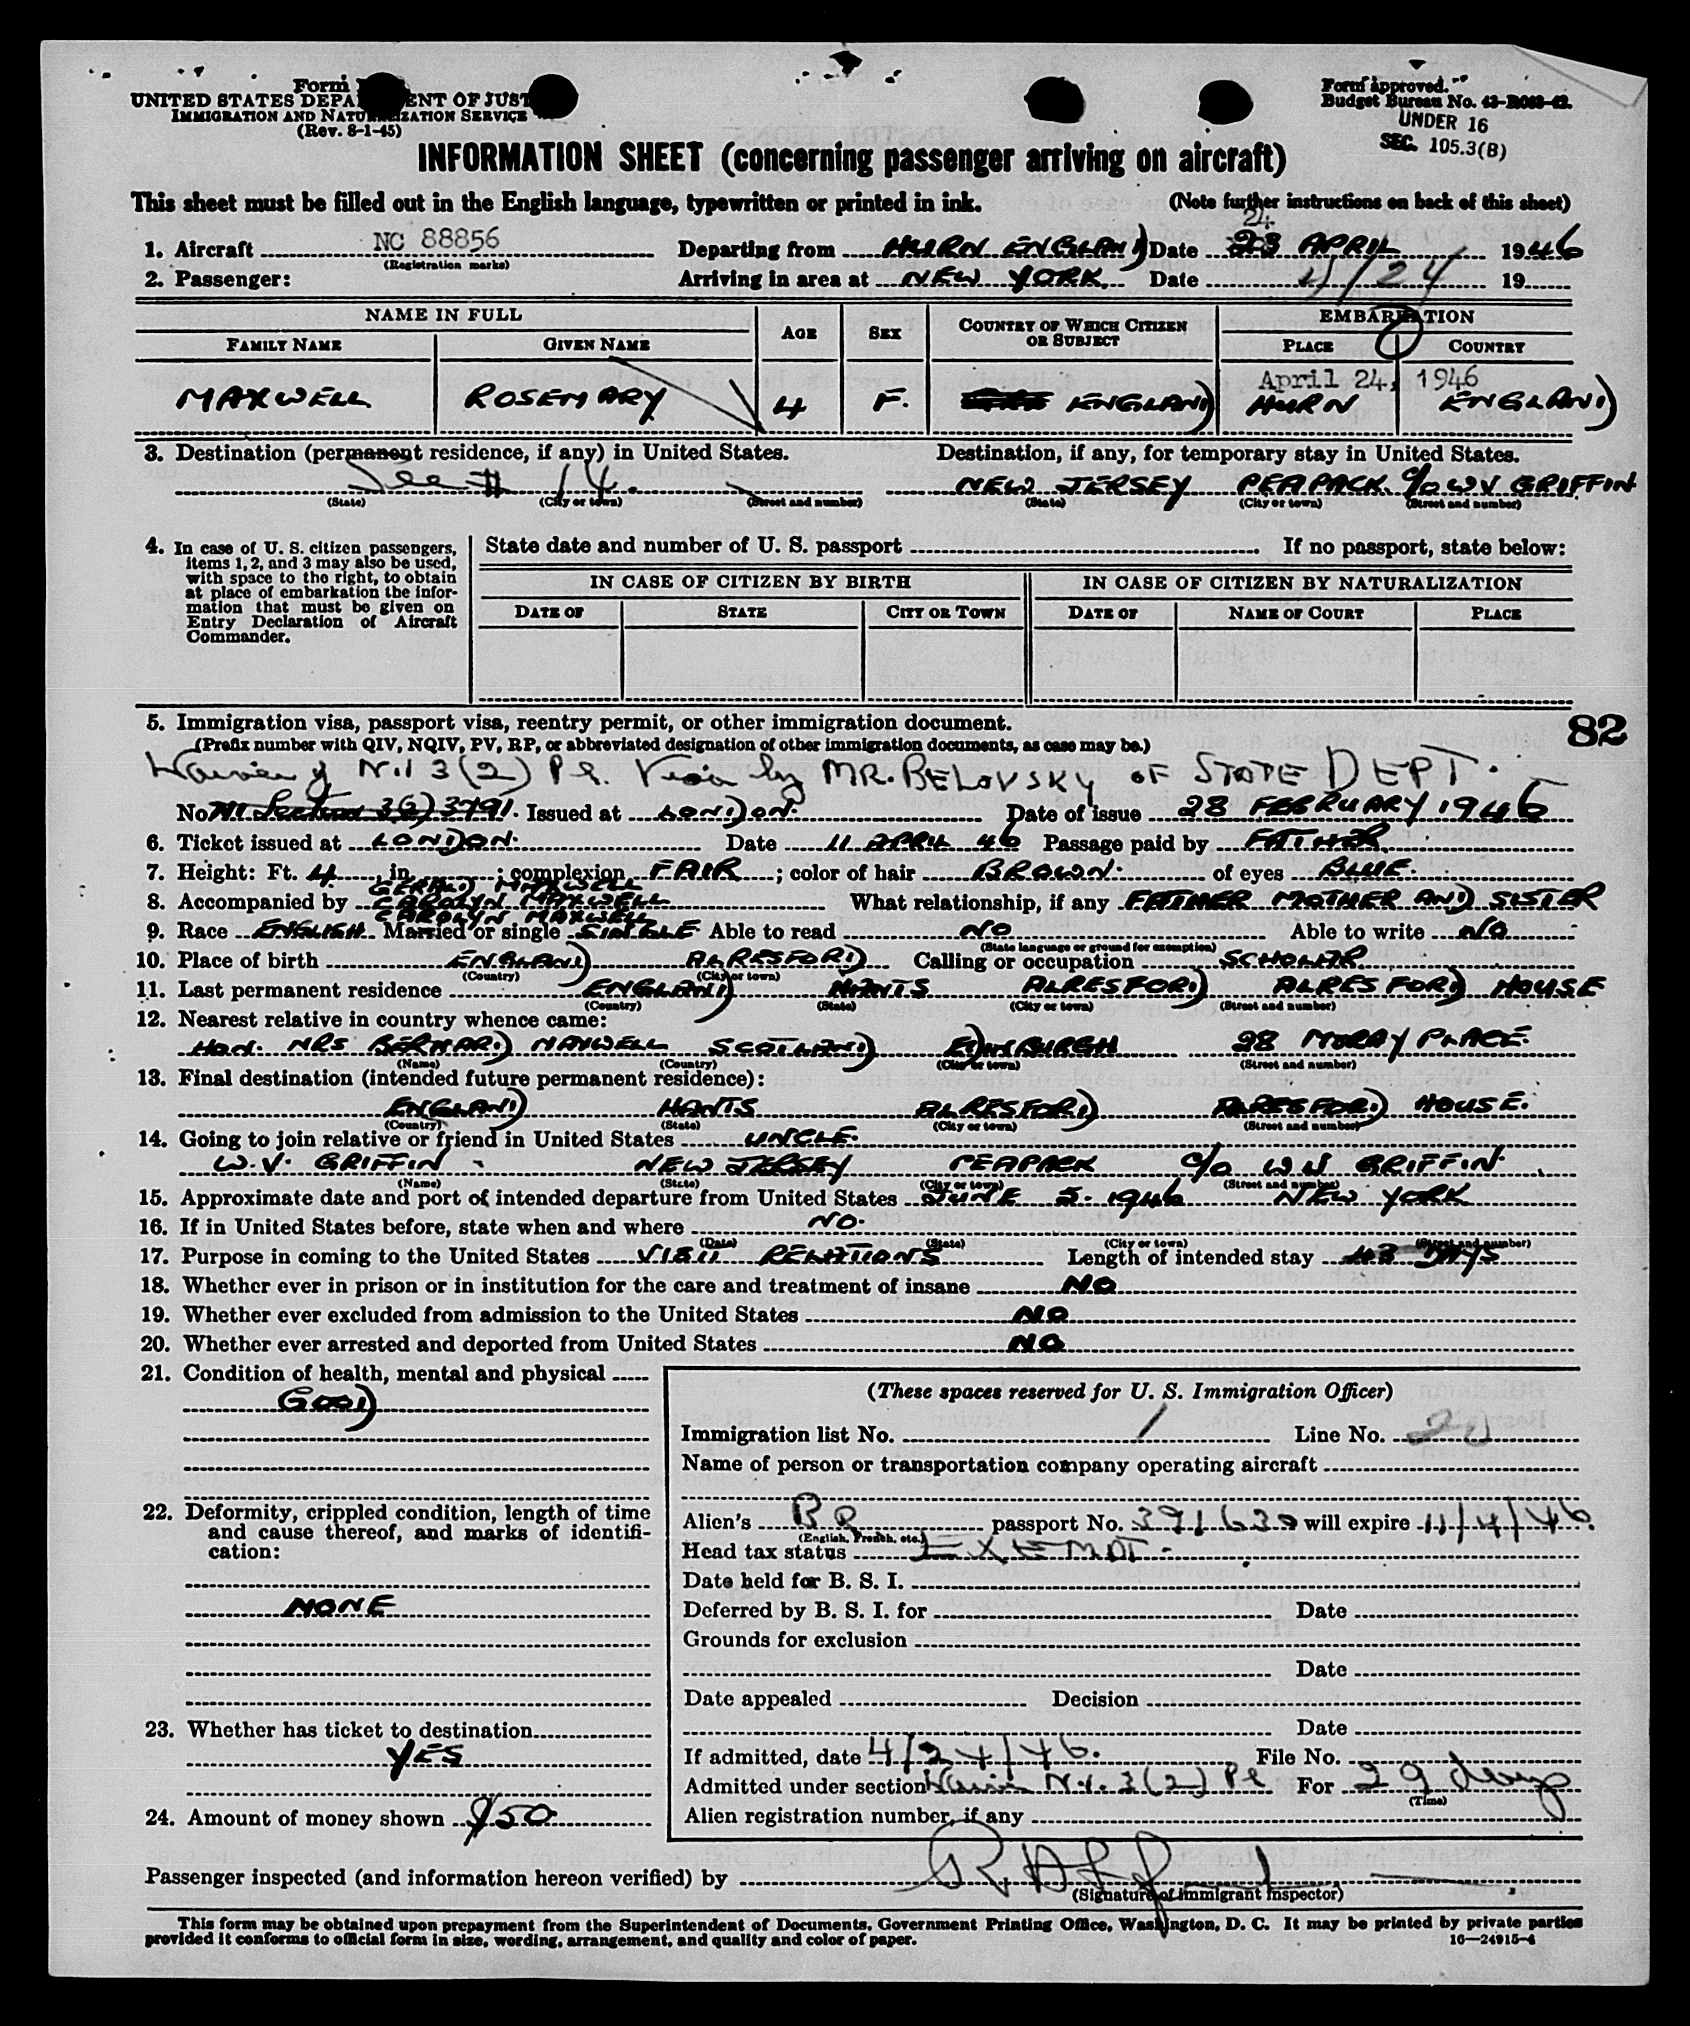 Form
UNITED STATES DEPA ENT OF JUST
IMMIGRATION AND NATURALIZATION SERVICE
(Rev. 8-1-45)
Form approved.
Budget Bureau No. 43-R083-42.
UNDER 16
SEC. 105.3(B)
INFORMATION SHEET (concerning passenger arriving on aircraft)
This sheet must be filled out in the English language, typewritten or printed in ink. (Note further instructions on back of this sheet)
24
1. Aircraft NC 88856 Departing from HURN ENGLAND Date 23 APRIL 1946
(Registration marks)
2. Passenger: Arriving in area at NEW YORK. Date 4/24/ 19
NAME IN FULL AGE SEX COUNTRY OF WHICH CITIZEN OR SUBJECT EMBARKATION
FAMILY NAME GIVEN NAME PLACE COUNTRY
April 24, 1946
MAXWELL ROSEMARY 4 F. ENGLAND HURN ENGLAND
3. Destination (permanent residence, if any) in United States. Destination, if any, for temporary stay in United States.
See # 14. NEW JERSEY PEAPACK c/o W V GRIFFIN
(State) (City or town) (Street and number) (State) (City or town) (Street and number)
4. In case of U. S. citizen passengers, items 1, 2, and 3 may also be used, with space to the right, to obtain at place of embarkation the information that must be given on Entry Declaration of Aircraft Commander.
State date and number of U. S. passport If no passport, state below:
IN CASE OF CITIZEN BY BIRTH IN CASE OF CITIZEN BY NATURALIZATION
DATE OF STATE CITY OR TOWN DATE OF NAME OF COURT PLACE
5. Immigration visa, passport visa, reentry permit, or other immigration document. 82
(Prefix number with QIV, NQIV, PV, RP, or abbreviated designation of other immigration documents, as case may be.)
Waiver of N.I 3(2) P.l. Visa by MR. BELOVSKY OF STATE DEPT.
No. NI Section 3(2) 3791. Issued at LONDON. Date of issue 28 FEBRUARY 1946
6. Ticket issued at LONDON. Date 11 APRIL 46 Passage paid by FATHER
7. Height: Ft. 4, in. ; complexion FAIR ; color of hair BROWN. of eyes BLUE.
GERALD MAXWELL
8. Accompanied by CAROLYN MAXWELL What relationship, if any FATHER MOTHER AND SISTER
CAROLYN MAXWELL
9. Race ENGLISH Married or single SINGLE Able to read NO Able to write NO
(State language or ground for exemption)
10. Place of birth ENGLAND ALRESFORD Calling or occupation SCHOLAR
(Country) (City or town)
11. Last permanent residence ENGLAND HANTS ALRESFORD ALRESFORD HOUSE
(Country) (State) (City or town) (Street and number)
12. Nearest relative in country whence came:
HON. MRS BERNARD MAXWELL SCOTLAND EDINBURGH 28 MORAY PLACE.
(Name) (Country) (City or town) (Street and number)
13. Final destination (intended future permanent residence):
ENGLAND HANTS ALRESFORD ALRESFORD HOUSE.
(Country) (State) (City or town) (Street and number)
14. Going to join relative or friend in United States UNCLE.
W. V. GRIFFIN NEW JERSEY PEAPACK c/o W V GRIFFIN.
(Name) (State) (City or town) (Street and number)
15. Approximate date and port of intended departure from United States JUNE 5. 1946 NEW YORK
16. If in United States before, state when and where NO.
(Date) (State) (City or town) (Street and number)
17. Purpose in coming to the United States VISIT RELATIONS Length of intended stay 43 DAYS
18. Whether ever in prison or in institution for the care and treatment of insane NO
19. Whether ever excluded from admission to the United States NO
20. Whether ever arrested and deported from United States NO
21. Condition of health, mental and physical
GOOD
22. Deformity, crippled condition, length of time and cause thereof, and marks of identification:
NONE
23. Whether has ticket to destination
YES
24. Amount of money shown $50.
(These spaces reserved for U. S. Immigration Officer)
Immigration list No. 1 Line No. 20
Name of person or transportation company operating aircraft
Alien's BR passport No. 391630 will expire 11/4/46.
(English, French, etc.)
Head tax status EXEMPT.
Date held for B. S. I.
Deferred by B. S. I. for Date
Grounds for exclusion
Date
Date appealed Decision
Date
If admitted, date 4/24/46. File No.
Admitted under section Waiver N.I. 3(2) Pl For 29 days
(Time)
Alien registration number, if any
Passenger inspected (and information hereon verified) by
(Signature of immigrant inspector)
This form may be obtained upon prepayment from the Superintendent of Documents, Government Printing Office, Washington, D. C. It may be printed by private parties
provided it conforms to official form in size, wording, arrangement, and quality and color of paper. 16—24915-4